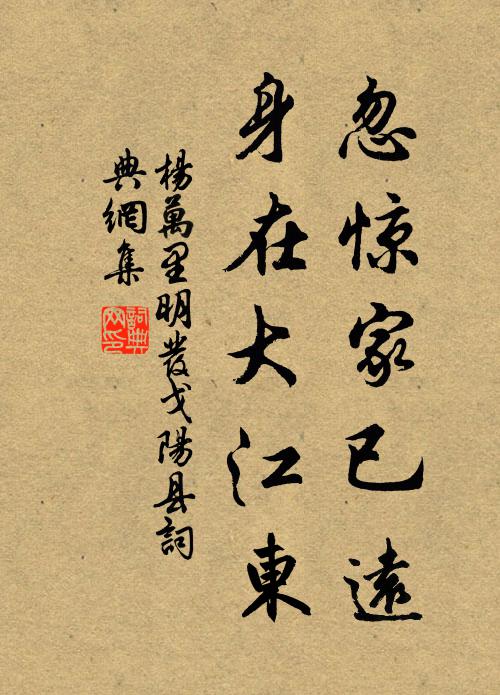 忽惊家已遠
身在大江東
楊萬里明發戈陽县詞
典網集
詞典网印